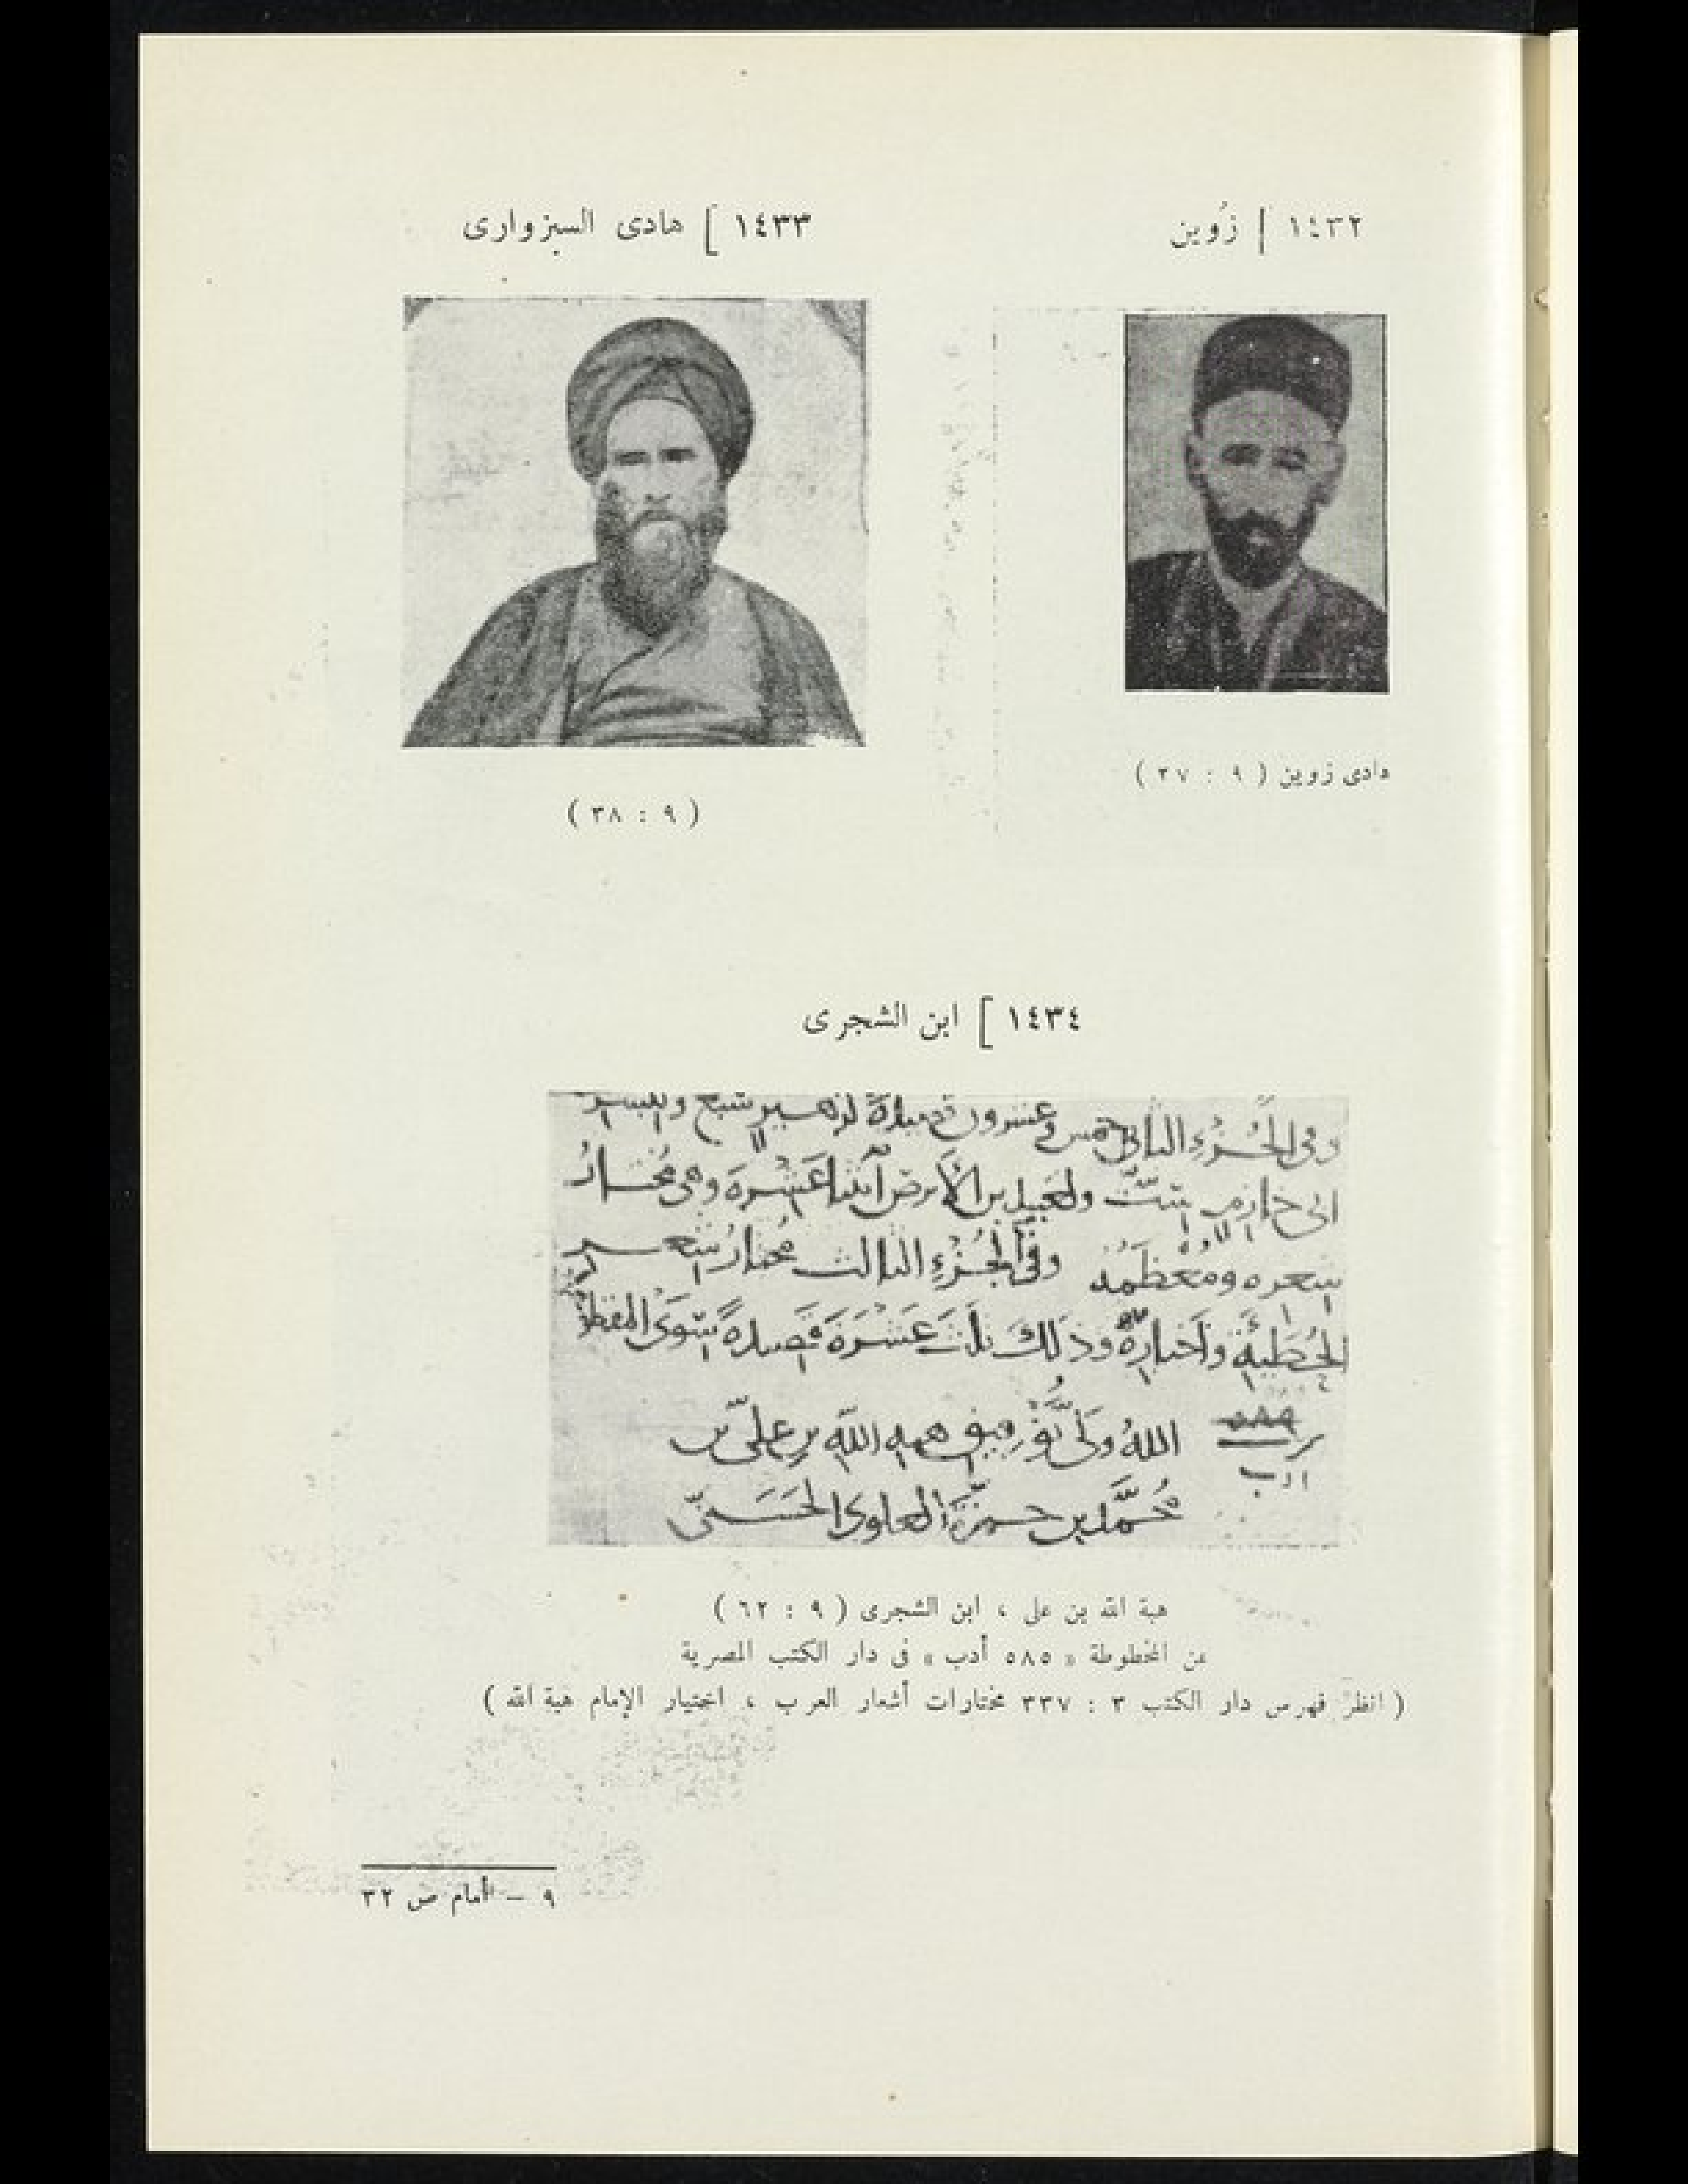 ١٤٣٢ [ زُوين
هادى زوين ( ٩ : ٣٧ )
١٤٣٣ [ هادى السبزوارى
( ٩ : ٣٨ )
١٤٣٤ [ ابن الشجرى
وفى الجُزْءِ الثانى خمس وعشرون قصيدة لزهير سبع ولبشر
ابى خازم ستّ ولعَبِيد بن الأبرص اثنتا عَشْرة وهى مُختارُ
شعره ومُعْظَمُه وفى الجُزْءِ الثالث مُختارُ شعر
الحُطَيئة وأخبارِه وذلك ثلاثَ عَشْرَةَ قصيدةً سوى المقطعات
٥٨٥
ادب
اللهُ ولىّ توفيق هبه الله بن علىّ بن
محمّد بن حمزة العلوى الحَسَنىّ
هبة الله بن على ، ابن الشجرى ( ٩ : ٦٢ )
عن المخطوطة « ٥٨٥ أدب » فى دار الكتب المصرية
( انظر فهرس دار الكتب ٣ : ٣٣٧ مختارات أشعار العرب ، اختيار الإمام هبة الله )
٩ – أمام ص ٣٢